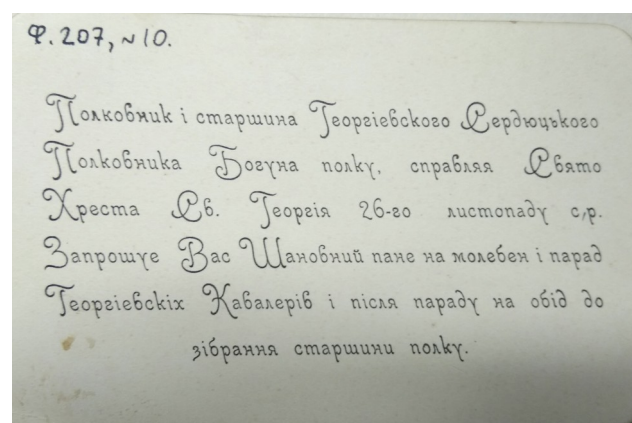 Ф. 207, №10.
Полковник і старшина Георгіевского Сердюцького
Полковника Богуна полку, справляя Свято
Хреста Св. Георгія 26-го листопаду с,р.
Запрошує Вас Шановний пане на молебен і парад
Георгіевскіх Кавалерів і після параду на обід до
зібрання старшини полку.